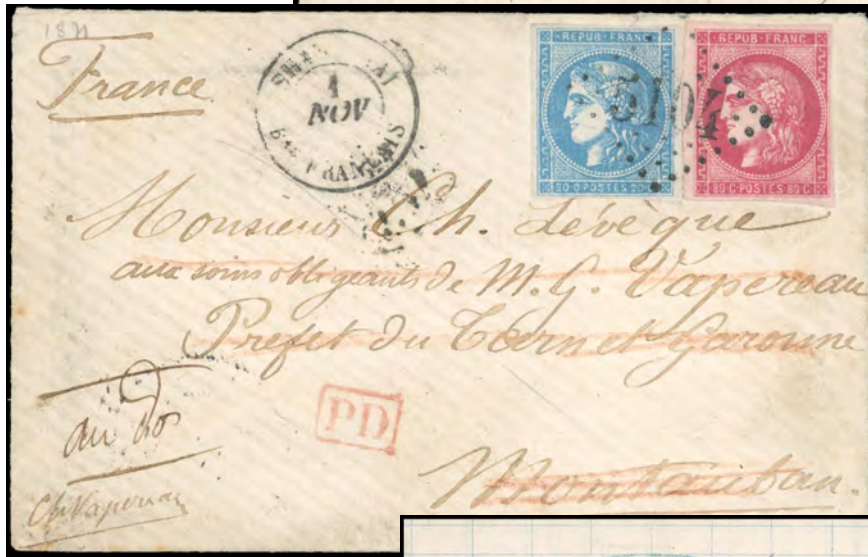 1871
France
SHANG AI
1
NOV
Bau FRANCAIS
REPUB·FRANC
20·C·POSTES·20·C
REPUB·FRANC
80·C·POSTES·80·C
5104
Monsieur Ch. Lévêque
aux soins obligeants de M. G. Vapereau
Préfet du Tarn et Garonne
PD
au dos
Ch Vapereau
Montauban.